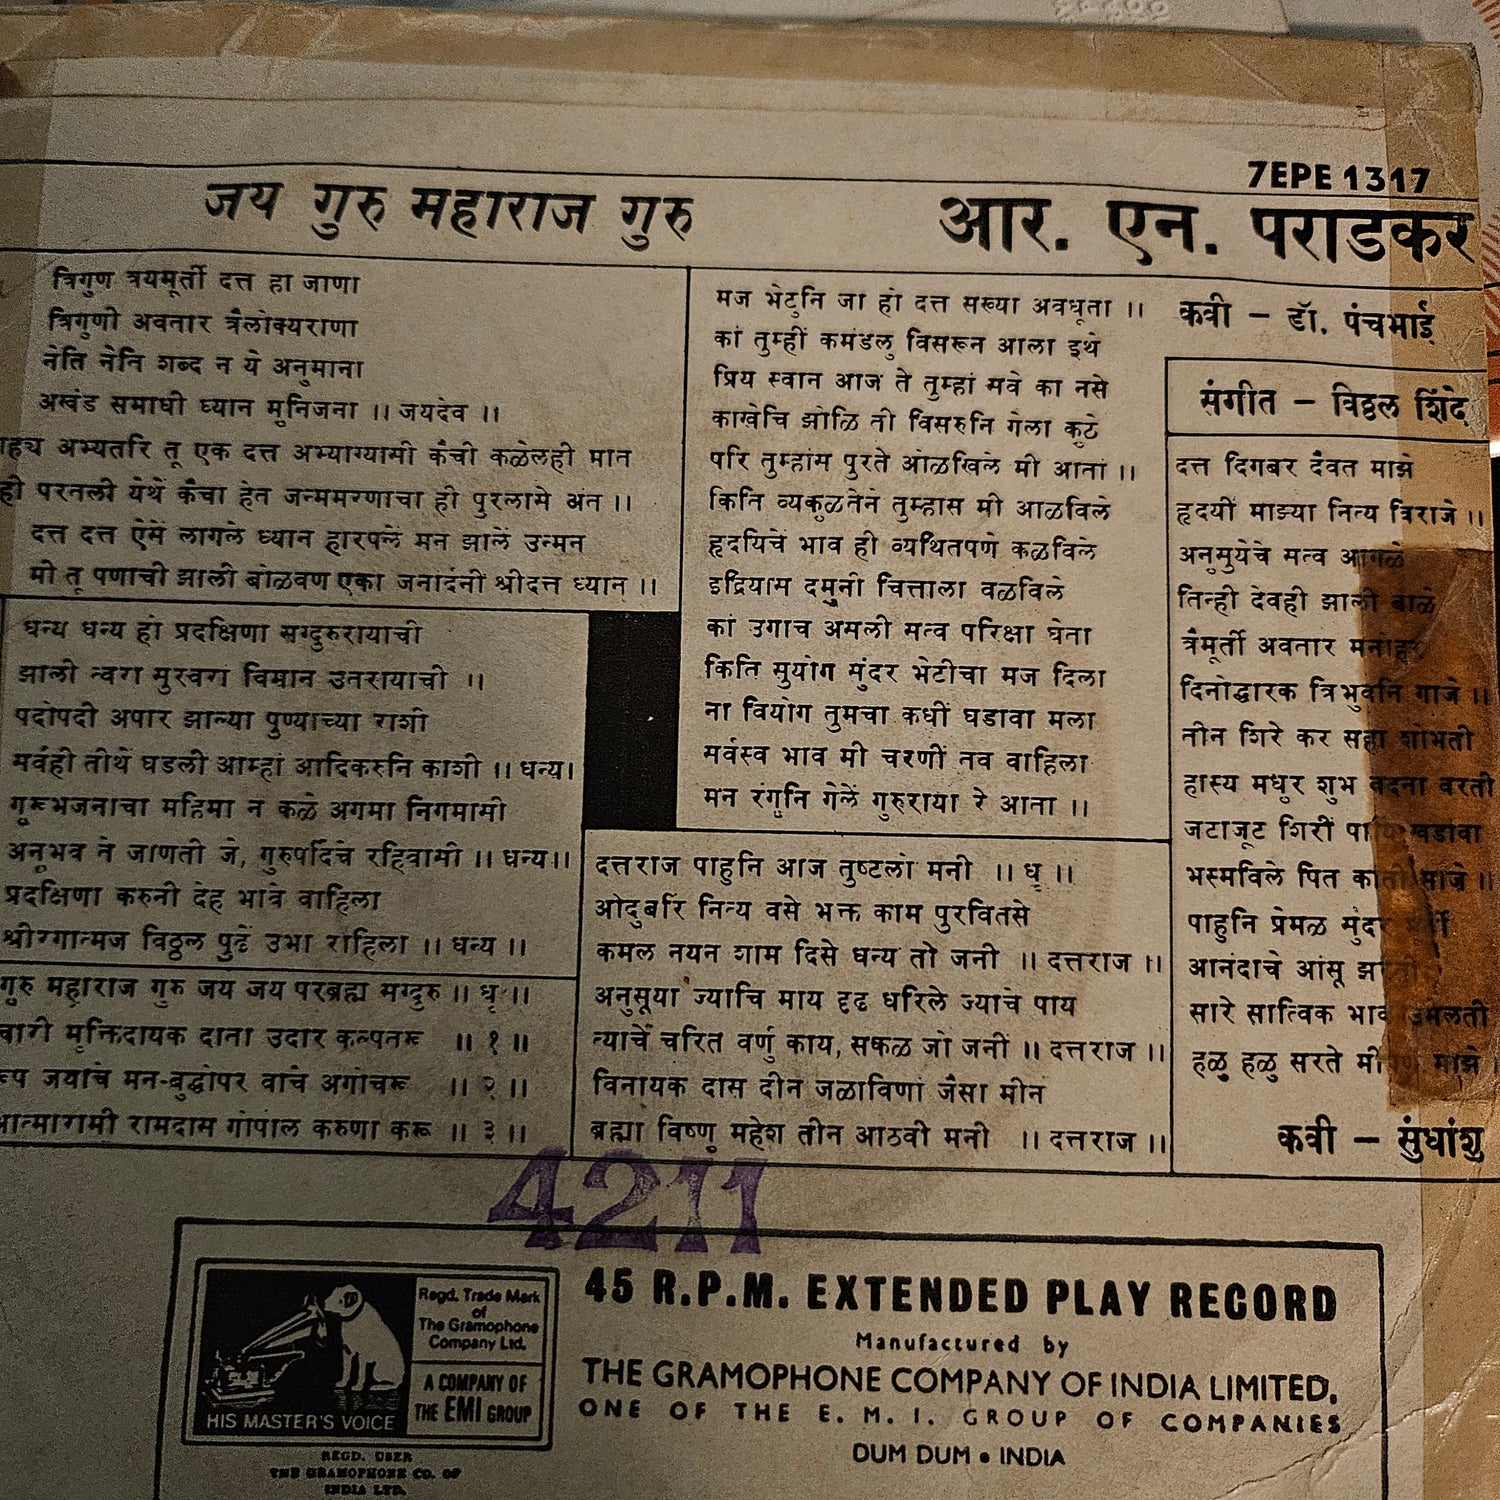 7EPE 1317
जय गुरु महाराज गुरु
आर. एन. पराडकर
त्रिगुण त्रयमूर्ती दत्त हा जाणा
त्रिगुणी अवतार त्रैलोक्यराणा
नेति नेति शब्द न ये अनुमाना
अखंड समाधी ध्यान मुनिजना ।। जयदेव ।।
अभ्यतरि तू एक दत्त कैची कळेलही मात
परतली येथें कैंचा हेत जन्ममरणाचा ही पुरलासे अंत ।।
दत्त दत्त ऐसें लागले ध्यान हारपलें मन झालें उन्मन
मी तू पणाची झाली बोळवण एका जनार्दनी श्रीदत्त ध्यान ।।
धन्य धन्य हो प्रदक्षिणा सग्दुरुरायाची
झाली त्वरा सुरवरा विमान उतरायाची ।।
पदोपदी अपार झाल्या पुण्याच्या राशी
सर्वही तीर्थे घडली आम्हां आदिकरुनि काशी ।। धन्य।
गुरूभजनाचा महिमा न कळे अगमा निगमासी
अनुभव ते जाणती जे, गुरुपदिंचे रहिवासी ।। धन्य।।
प्रदक्षिणा करुनी देह भावे वाहिला
श्रीरंगात्मज विठ्ठल पुढें उभा राहिला ।। धन्य ।।
गुरु महाराज गुरु जय जय परब्रह्म सग्दुरु ।। धृ ।।
मुक्तिदायक दाता उदार कल्पतरू ।। १ ।।
जयाचे मन-बुद्धीपर वाचे अगोचरू ।। २ ।।
आत्मारामी रामदास गोपाल करुणा करू ।। ३ ।।
मज भेटुनि जा हो दत्त सख्या अवधूता ।।
कां तुम्हीं कमंडलु विसरून आला इथे
प्रिय स्वान आज ते तुम्हां सवे का नसे
काखेचि झोळि ती विसरुनि गेला कुठे
परि तुम्हांस पुरते ओळखिले मी आतां ।।
किति व्यकुळतेने तुम्हास मी आळविले
हृदयिचे भाव ही व्यथितपणे कळविले
इंद्रियास दमुनी चित्ताला वळविले
कां उगाच असली सत्व परिक्षा घेता
किति सुयोग सुंदर भेटीचा मज दिला
ना वियोग तुमचा कधीं घडावा मला
सर्वस्व भाव मी चरणीं तव वाहिला
मन रंगुनि गेलें गुरुराया रे आता ।।
दत्तराज पाहुनि आज तुष्टलो मनी ।। धृ ।।
ओदुबरि नित्य वसे भक्त काम पुरवितसे
कमल नयन शाम दिसे धन्य तो जनी ।। दत्तराज ।।
अनुसूया ज्याचि माय दृढ धरिले ज्याचे पाय
त्याचें चरित वर्णु काय, सकळ जो जनीं ।। दत्तराज ।।
विनायक दास दीन जळाविणां जैसा मीन
ब्रह्मा विष्णु महेश तीन आठवी मनी ।। दत्तराज ।।
कवी – डॉ. पंचभाई
संगीत – विठ्ठल शिंदे
दत्त दिगबर दैवत माझे
हृदयीं माझ्या नित्य विराजे ।।
अनुसुयेचे सत्व आगळे
तिन्ही देवही झाली बाळे
त्रैमूर्ती अवतार मनोहर
दिनोद्धारक त्रिभुवनि गाजे ।।
तीन शिरे कर सहा शोभती
हास्य मधुर शुभ वदना वरती
जटाजूट शिरीं पायि खडावा
भस्मविले पित कांती साजे ।।
पाहुनि प्रेमळ सुंदर मूर्ती
आनंदाचे आंसू झरती
सारे सात्विक भाव उमलती
हळु हळु सरते मीपण माझे ।
कवी – सुंधांशु
4211
45 R.P.M. EXTENDED PLAY RECORD
Manufactured by
THE GRAMOPHONE COMPANY OF INDIA LIMITED.
ONE OF THE E. M. I. GROUP OF COMPANIES
DUM DUM • INDIA
Regd. Trade Mark
of
The Gramophone
Company Ltd.
A COMPANY OF
THE EMI GROUP
HIS MASTER'S VOICE
REGD. USER
THE GRAMOPHONE CO. OF
INDIA LTD.